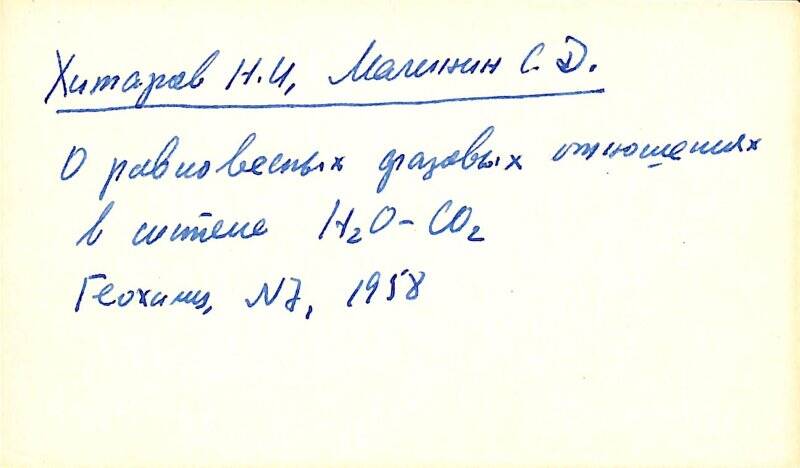 Хитаров Н.И, Малинин С.Д.
О равновесных фазовых отношениях
в системе H₂O-CO₂
Геохимия, N7, 1958